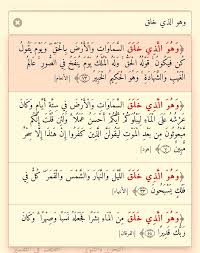 وهو الذي خلق
﴿وَهُوَ الَّذِي خَلَقَ السَّمَاوَاتِ وَالْأَرْضَ بِالْحَقِّ ۖ وَيَوْمَ يَقُولُ
كُن فَيَكُونُ ۚ قَوْلُهُ الْحَقُّ ۚ وَلَهُ الْمُلْكُ يَوْمَ يُنفَخُ فِي الصُّورِ ۚ عَالِمُ
الْغَيْبِ وَالشَّهَادَةِ ۚ وَهُوَ الْحَكِيمُ الْخَبِيرُ ٧٣﴾ [الأنعام]
﴿وَهُوَ الَّذِي خَلَقَ السَّمَاوَاتِ وَالْأَرْضَ فِي سِتَّةِ أَيَّامٍ وَكَانَ
عَرْشُهُ عَلَى الْمَاءِ لِيَبْلُوَكُمْ أَيُّكُمْ أَحْسَنُ عَمَلًا ۗ وَلَئِن قُلْتَ إِنَّكُم
مَّبْعُوثُونَ مِن بَعْدِ الْمَوْتِ لَيَقُولَنَّ الَّذِينَ كَفَرُوا إِنْ هَٰذَا إِلَّا سِحْرٌ
مُّبِينٌ ٧﴾ [هود]
﴿وَهُوَ الَّذِي خَلَقَ اللَّيْلَ وَالنَّهَارَ وَالشَّمْسَ وَالْقَمَرَ ۖ كُلٌّ فِي
فَلَكٍ يَسْبَحُونَ ٣٣﴾ [الأنبياء]
﴿وَهُوَ الَّذِي خَلَقَ مِنَ الْمَاءِ بَشَرًا فَجَعَلَهُ نَسَبًا وَصِهْرًا ۗ وَكَانَ
رَبُّكَ قَدِيرًا ٥٤﴾ [الفرقان]